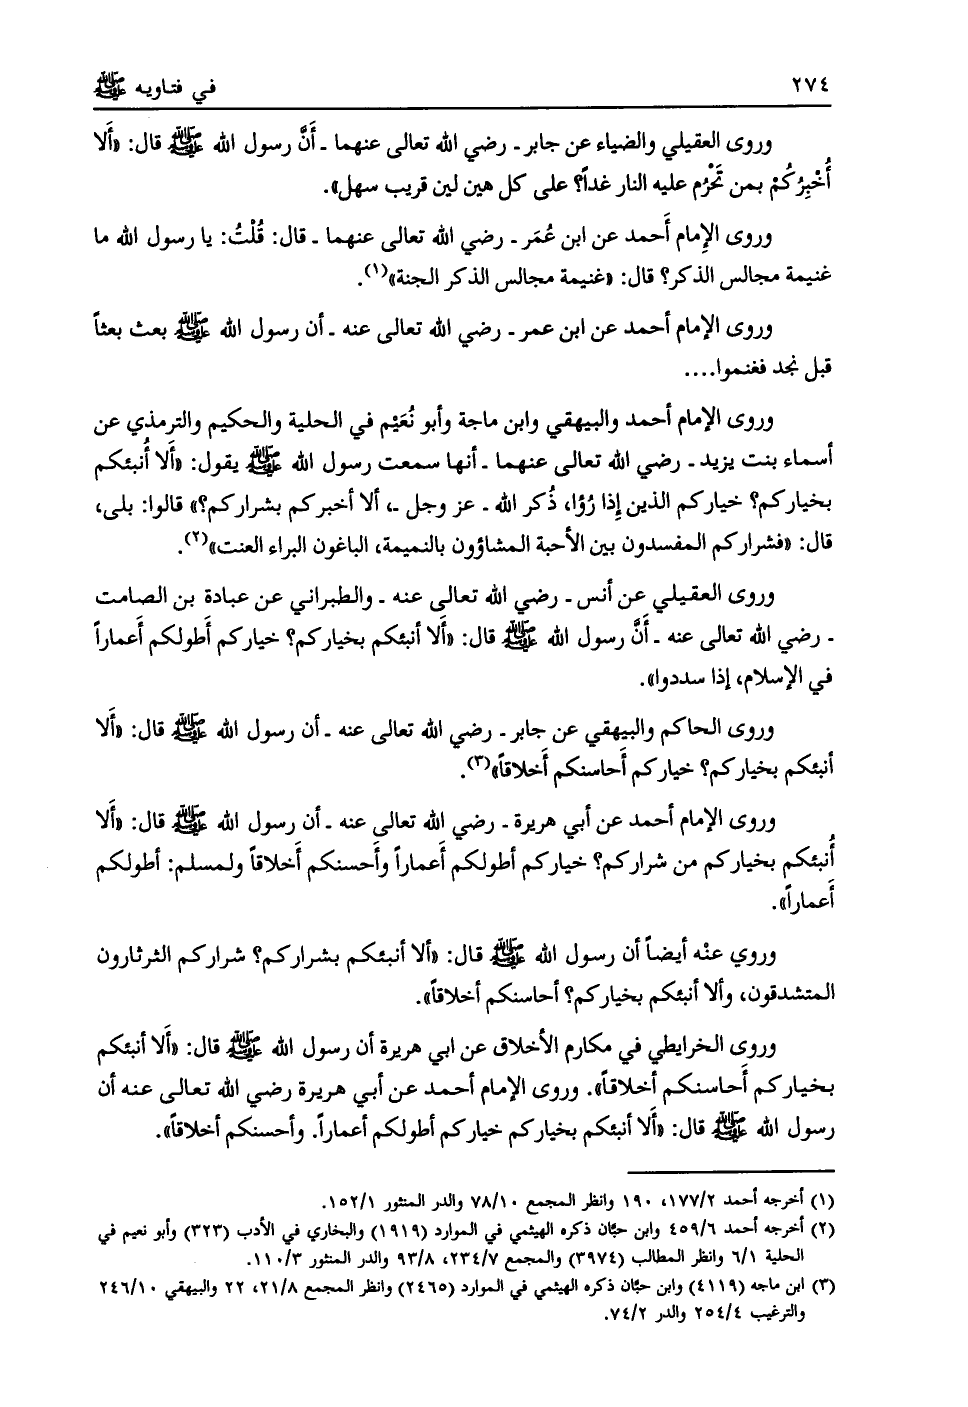 ٢٧٤
في فتاويه ﷺ
وروى العقيلي والضياء عن جابر ـ رضي الله تعالى عنهما ـ أَنَّ رسول الله ﷺ قال: «أَلا
أُخْبِرُكُمْ بمن تَحْرُم عليه النار غداً؟ على كل هين لين قريب سهل».
وروى الإِمام أَحمد عن ابن عُمَر ـ رضي الله تعالى عنهما ـ قال: قُلْتُ: يا رسول الله ما
غنيمة مجالس الذكر؟ قال: «غنيمة مجالس الذكر الجنة»(١).
وروى الإمام أحمد عن ابن عمر ـ رضي الله تعالى عنه ـ أن رسول الله ﷺ بعث بعثاً
قبل نجد فغنموا....
وروى الإمام أحمد والبيهقي وابن ماجة وأبو نُعَيْم في الحلية والحكيم والترمذي عن
أسماء بنت يزيد ـ رضي الله تعالى عنهما ـ أنها سمعت رسول الله ﷺ يقول: «أَلا أُنبئكم
بخياركم؟ خياركم الذين إِذا رُؤا، ذُكر الله ـ عز وجل ـ، ألا أخبركم بشراركم؟» قالوا: بلى،
قال: «فشراركم المفسدون بين الأحبة المشاؤون بالنميمة، الباغون البراء العنت»(٢).
وروى العقيلي عن أنس ـ رضي الله تعالى عنه ـ والطبراني عن عبادة بن الصامت
ـ رضي الله تعالى عنه ـ أَنَّ رسول الله ﷺ قال: «أَلا أنبئكم بخياركم؟ خياركم أَطولكم أَعماراً
في الإسلام، إذا سددوا».
وروى الحاكم والبيهقي عن جابر ـ رضي الله تعالى عنه ـ أن رسول الله ﷺ قال: «أَلا
أنبئكم بخياركم؟ خياركم أَحاسنكم أَخلاقاً»(٣).
وروى الإمام أحمد عن أبي هريرة ـ رضي الله تعالى عنه ـ أن رسول الله ﷺ قال: «أَلا
أُنبئكم بخياركم من شراركم؟ خياركم أطولكم أَعماراً وأَحسنكم أَخلاقاً ولمسلم: أطولكم
أَعماراً».
وروي عنْه أيضاً أن رسول الله ﷺ قال: «ألا أنبئكم بشراركم؟ شراركم الثرثارون
المتشدقون، وألا أنبئكم بخياركم؟ أحاسنكم أخلاقاً».
وروى الخرايطي في مكارم الأخلاق عن ابي هريرة أن رسول الله ﷺ قال: «أَلا أنبئكم
بخياركم أَحاسنكم أخلاقاً». وروى الإمام أحمد عن أبي هريرة رضي الله تعالى عنه أن
رسول الله ﷺ قال: «أَلا أنبئكم بخياركم خياركم أطولكم أعماراً. وأحسنكم أخلاقاً».
(١) أخرجه أحمد ١٧٧/٢، ١٩٠ وانظر المجمع ٧٨/١٠ والدر المنثور ١٥٢/١.
(٢) أخرجه أحمد ٤٥٩/٦ وابن حبَّان ذكره الهيثمي في الموارد (١٩١٩) والبخاري في الأدب (٣٢٣) وأبو نعيم في
الحلية ٦/١ وانظر المطالب (٣٩٧٤) والمجمع ٢٣٤/٧، ٩٣/٨ والدر المنثور ١١٠/٣.
(٣) ابن ماجه (٤١١٩) وابن حبَّان ذكره الهيثمي في الموارد (٢٤٦٥) وانظر المجمع ٢١/٨، ٢٢ والبيهقي ٢٤٦/١٠
والترغيب ٢٥٤/٤ والدر ٧٤/٢.